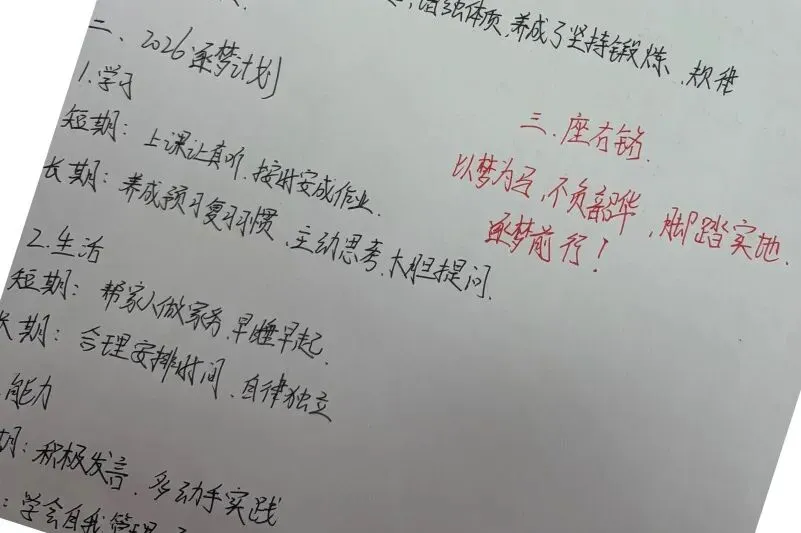 增强体质,养成了坚持锻炼、规律
二、2026逐梦计划
1.学习
短期:上课认真听、按时完成作业.
长期:养成预习复习习惯、主动思考、大胆提问.
2.生活
短期:帮家人做家务、早睡早起.
长期:合理安排时间、自律独立
能力
期:积极发言、多动手实践
:学会自我管理
三.座右铭.
以梦为马,不负韶华,脚踏实地.
逐梦前行!